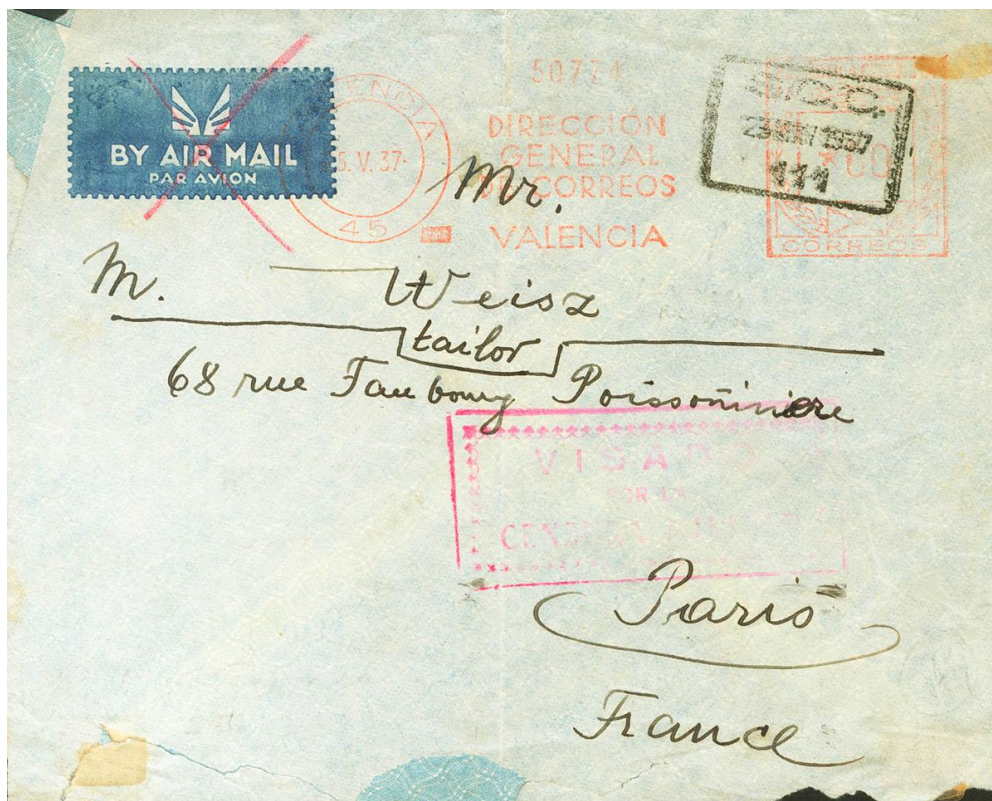 50774
BY AIR MAIL
PAR AVION
VALENCIA
5.V.37
45
DIRECCIÓN
GENERAL
DE CORREOS
VALENCIA
S.C.C.
23 MAY 1937
111
CORREOS
Mr.
M. Weisz
tailor
68 rue Faubourg Poissoñinière
VISADO
POR LA
CENSURA
Paris
France